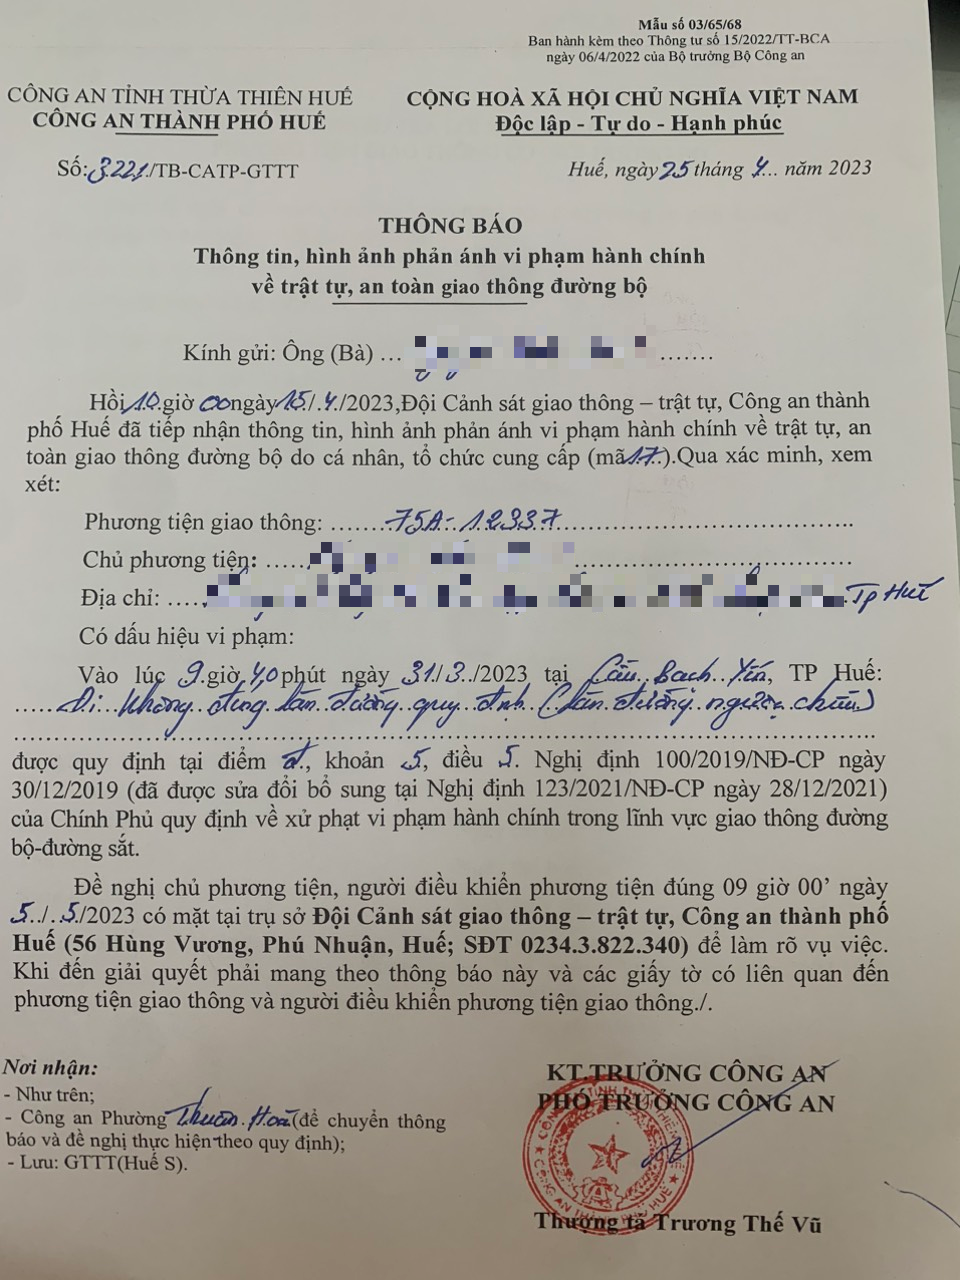 Mẫu số 03/65/68
Ban hành kèm theo Thông tư số 15/2022/TT-BCA
ngày 06/4/2022 của Bộ trưởng Bộ Công an
CÔNG AN TỈNH THỪA THIÊN HUẾ
CÔNG AN THÀNH PHỐ HUẾ
CỘNG HOÀ XÃ HỘI CHỦ NGHĨA VIỆT NAM
Độc lập - Tự do - Hạnh phúc
Số:3221/TB-CATP-GTTT
Huế, ngày 25 tháng 4... năm 2023
THÔNG BÁO
Thông tin, hình ảnh phản ánh vi phạm hành chính
về trật tự, an toàn giao thông đường bộ
Kính gửi: Ông (Bà) ... .......
Hồi 10.giờ 00 ngày 15/.4./2023,Đội Cảnh sát giao thông – trật tự, Công an thành
phố Huế đã tiếp nhận thông tin, hình ảnh phản ánh vi phạm hành chính về trật tự, an
toàn giao thông đường bộ do cá nhân, tổ chức cung cấp (mã 17.).Qua xác minh, xem
xét:
Phương tiện giao thông: ......75A-12337......
Chủ phương tiện: ......
Địa chỉ: .... Tp Huế
Có dấu hiệu vi phạm:
Vào lúc 9.giờ 40 phút ngày 31/3./2023 tại Cầu Bạch Yến, TP Huế:
.....Đi không đúng làn đường quy định (làn đường ngược chiều)
được quy định tại điểm đ., khoản 5, điều 5. Nghị định 100/2019/NĐ-CP ngày
30/12/2019 (đã được sửa đổi bổ sung tại Nghị định 123/2021/NĐ-CP ngày 28/12/2021)
của Chính Phủ quy định về xử phạt vi phạm hành chính trong lĩnh vực giao thông đường
bộ-đường sắt.
Đề nghị chủ phương tiện, người điều khiển phương tiện đúng 09 giờ 00’ ngày
5../..5/2023 có mặt tại trụ sở Đội Cảnh sát giao thông – trật tự, Công an thành phố
Huế (56 Hùng Vương, Phú Nhuận, Huế; SĐT 0234.3.822.340) để làm rõ vụ việc.
Khi đến giải quyết phải mang theo thông báo này và các giấy tờ có liên quan đến
phương tiện giao thông và người điều khiển phương tiện giao thông./.
Nơi nhận:
- Như trên;
- Công an Phường Thuận Hoà (để chuyển thông
báo và đề nghị thực hiện theo quy định);
- Lưu: GTTT(Huế S).
KT.TRƯỞNG CÔNG AN
PHÓ TRƯỞNG CÔNG AN
CÔNG AN THÀNH PHỐ HUẾ
Thượng tá Trương Thế Vũ